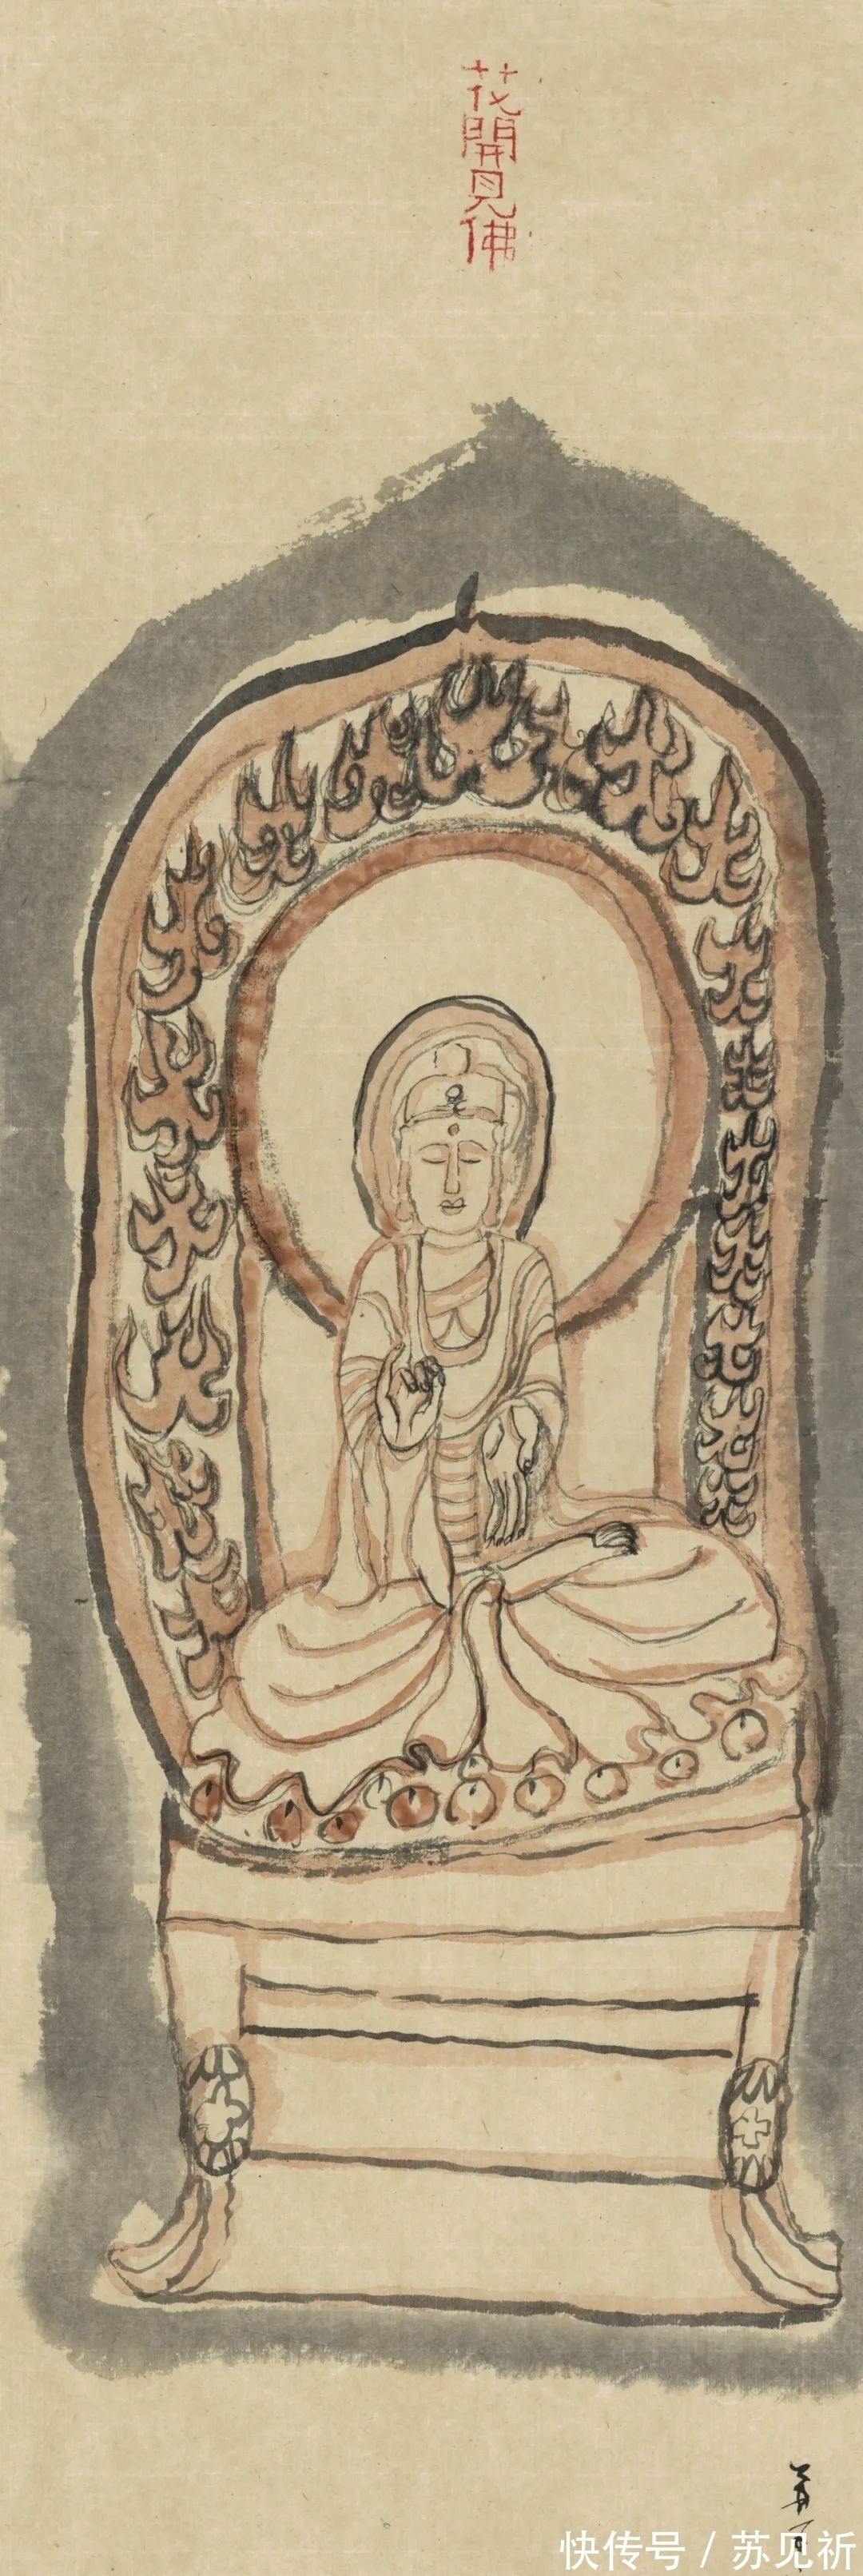 花開見佛
快传号 / 苏见祈